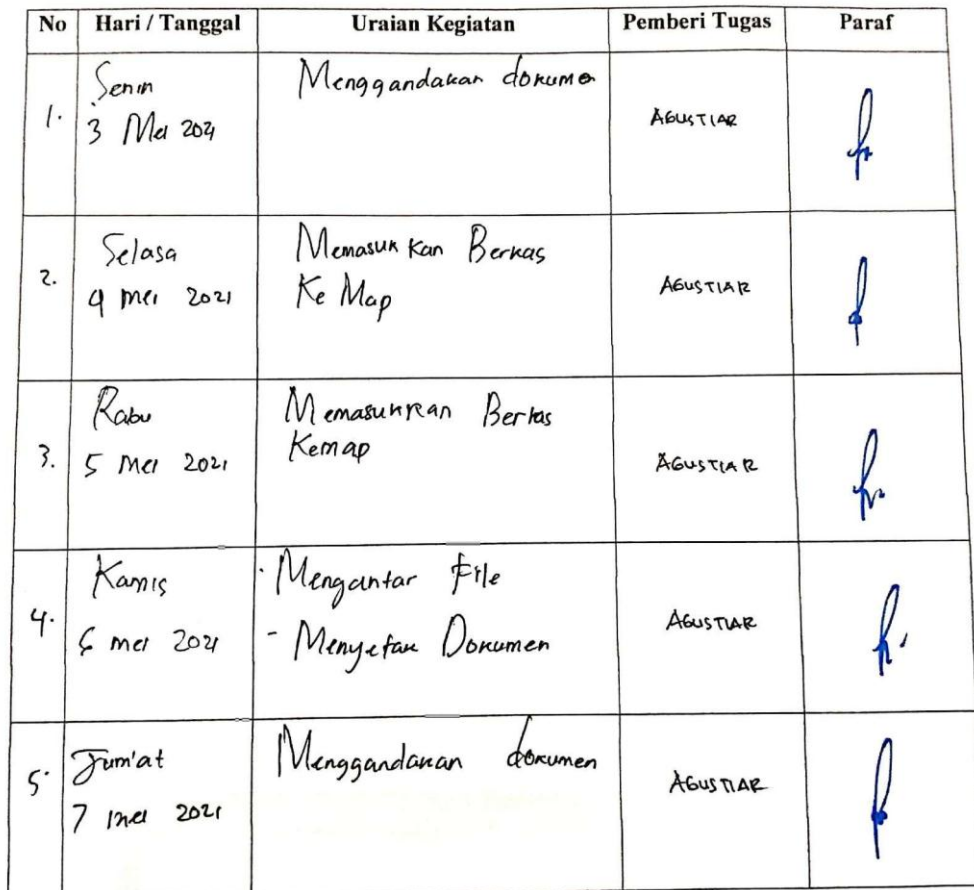 No Hari / Tanggal Uraian Kegiatan Pemberi Tugas Paraf
1. Senin
3 Mei 2021
Menggandakan dokumen
AGUSTIAR
2. Selasa
4 mei 2021
Memasukkan Berkas
Ke Map
AGUSTIAR
3. Rabu
5 Mei 2021
Memasukkan Berkas
Kemap
AGUSTIAR
4. Kamis
6 mei 2021
- Mengantar File
- Menyetak Dokumen
AGUSTIAR
5. Jum'at
7 mei 2021
Menggandakan dokumen
AGUSTIAR